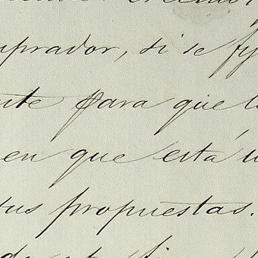 uprador, si se fij
nte para que l
en que está u
tus propuestas.